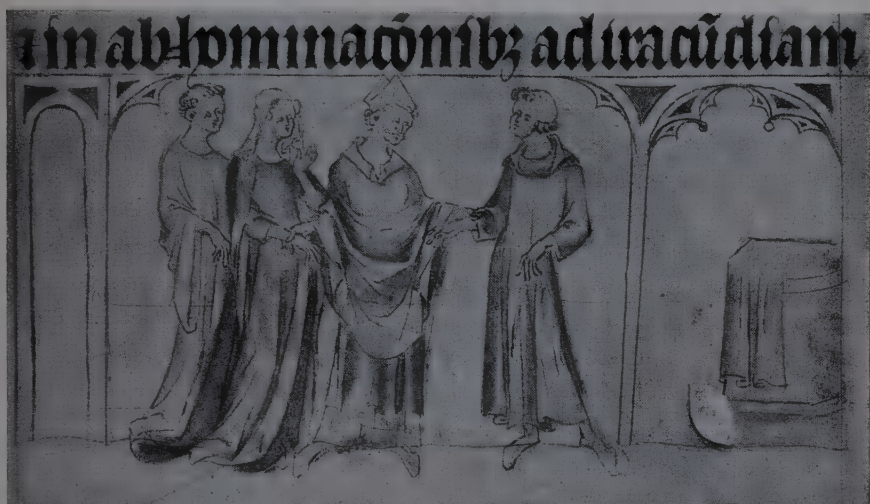 ⁊ in abhominacōnibꝫ ad iracūdiam